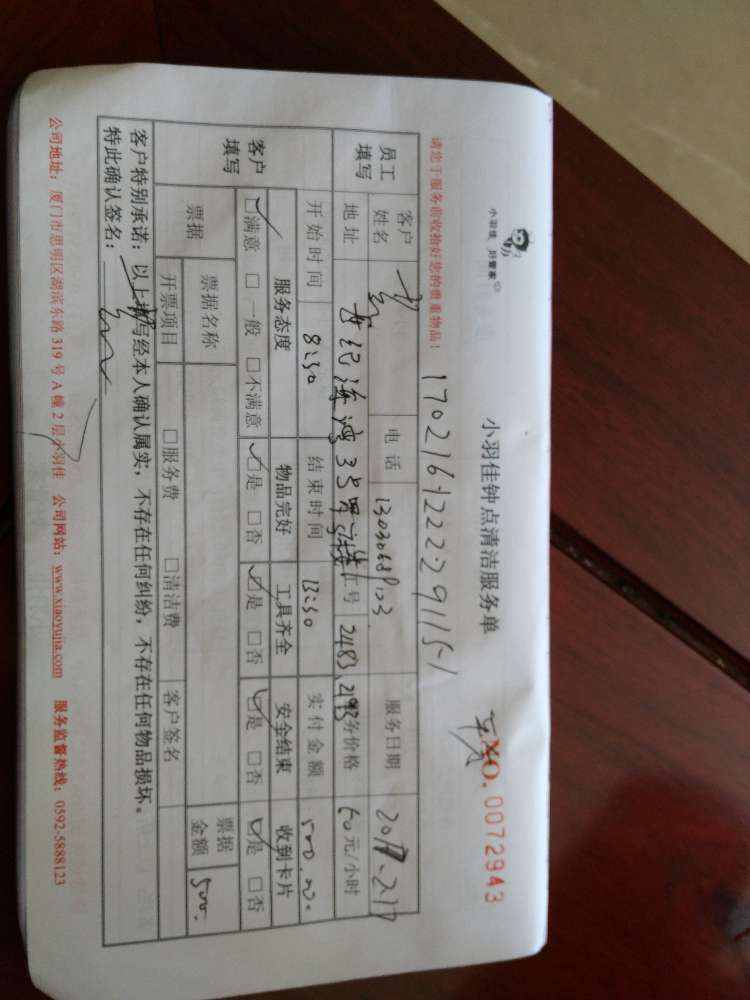 小羽佳 好管家
小羽佳钟点清洁服务单
NO. 0072943
请您于服务前收拾好您的贵重物品！
170216122229115-1
员工填写 客户姓名 电话 服务日期 2017-2-17
地址 世纪海湾35号 工号 2483 服务价格 60元/小时
开始时间 8:30 结束时间 13:30 实付金额
客户填写 服务态度 物品完好 工具齐全 安全结束 收到卡片
☑满意 □一般 □不满意 ☑是 □否 ☑是 □否 ☑是 □否 ☑是 □否
票据 票据名称 票据金额 500.
开票项目 □服务费 □清洁费 客户签名
客户特别承诺：以上填写经本人确认属实，不存在任何纠纷，不存在任何物品损坏。
特此确认签名：
公司地址：厦门市思明区湖滨东路319号A幢2层小羽佳 公司网站：www.xiaoyujia.com 服务监督热线：0592-5888123